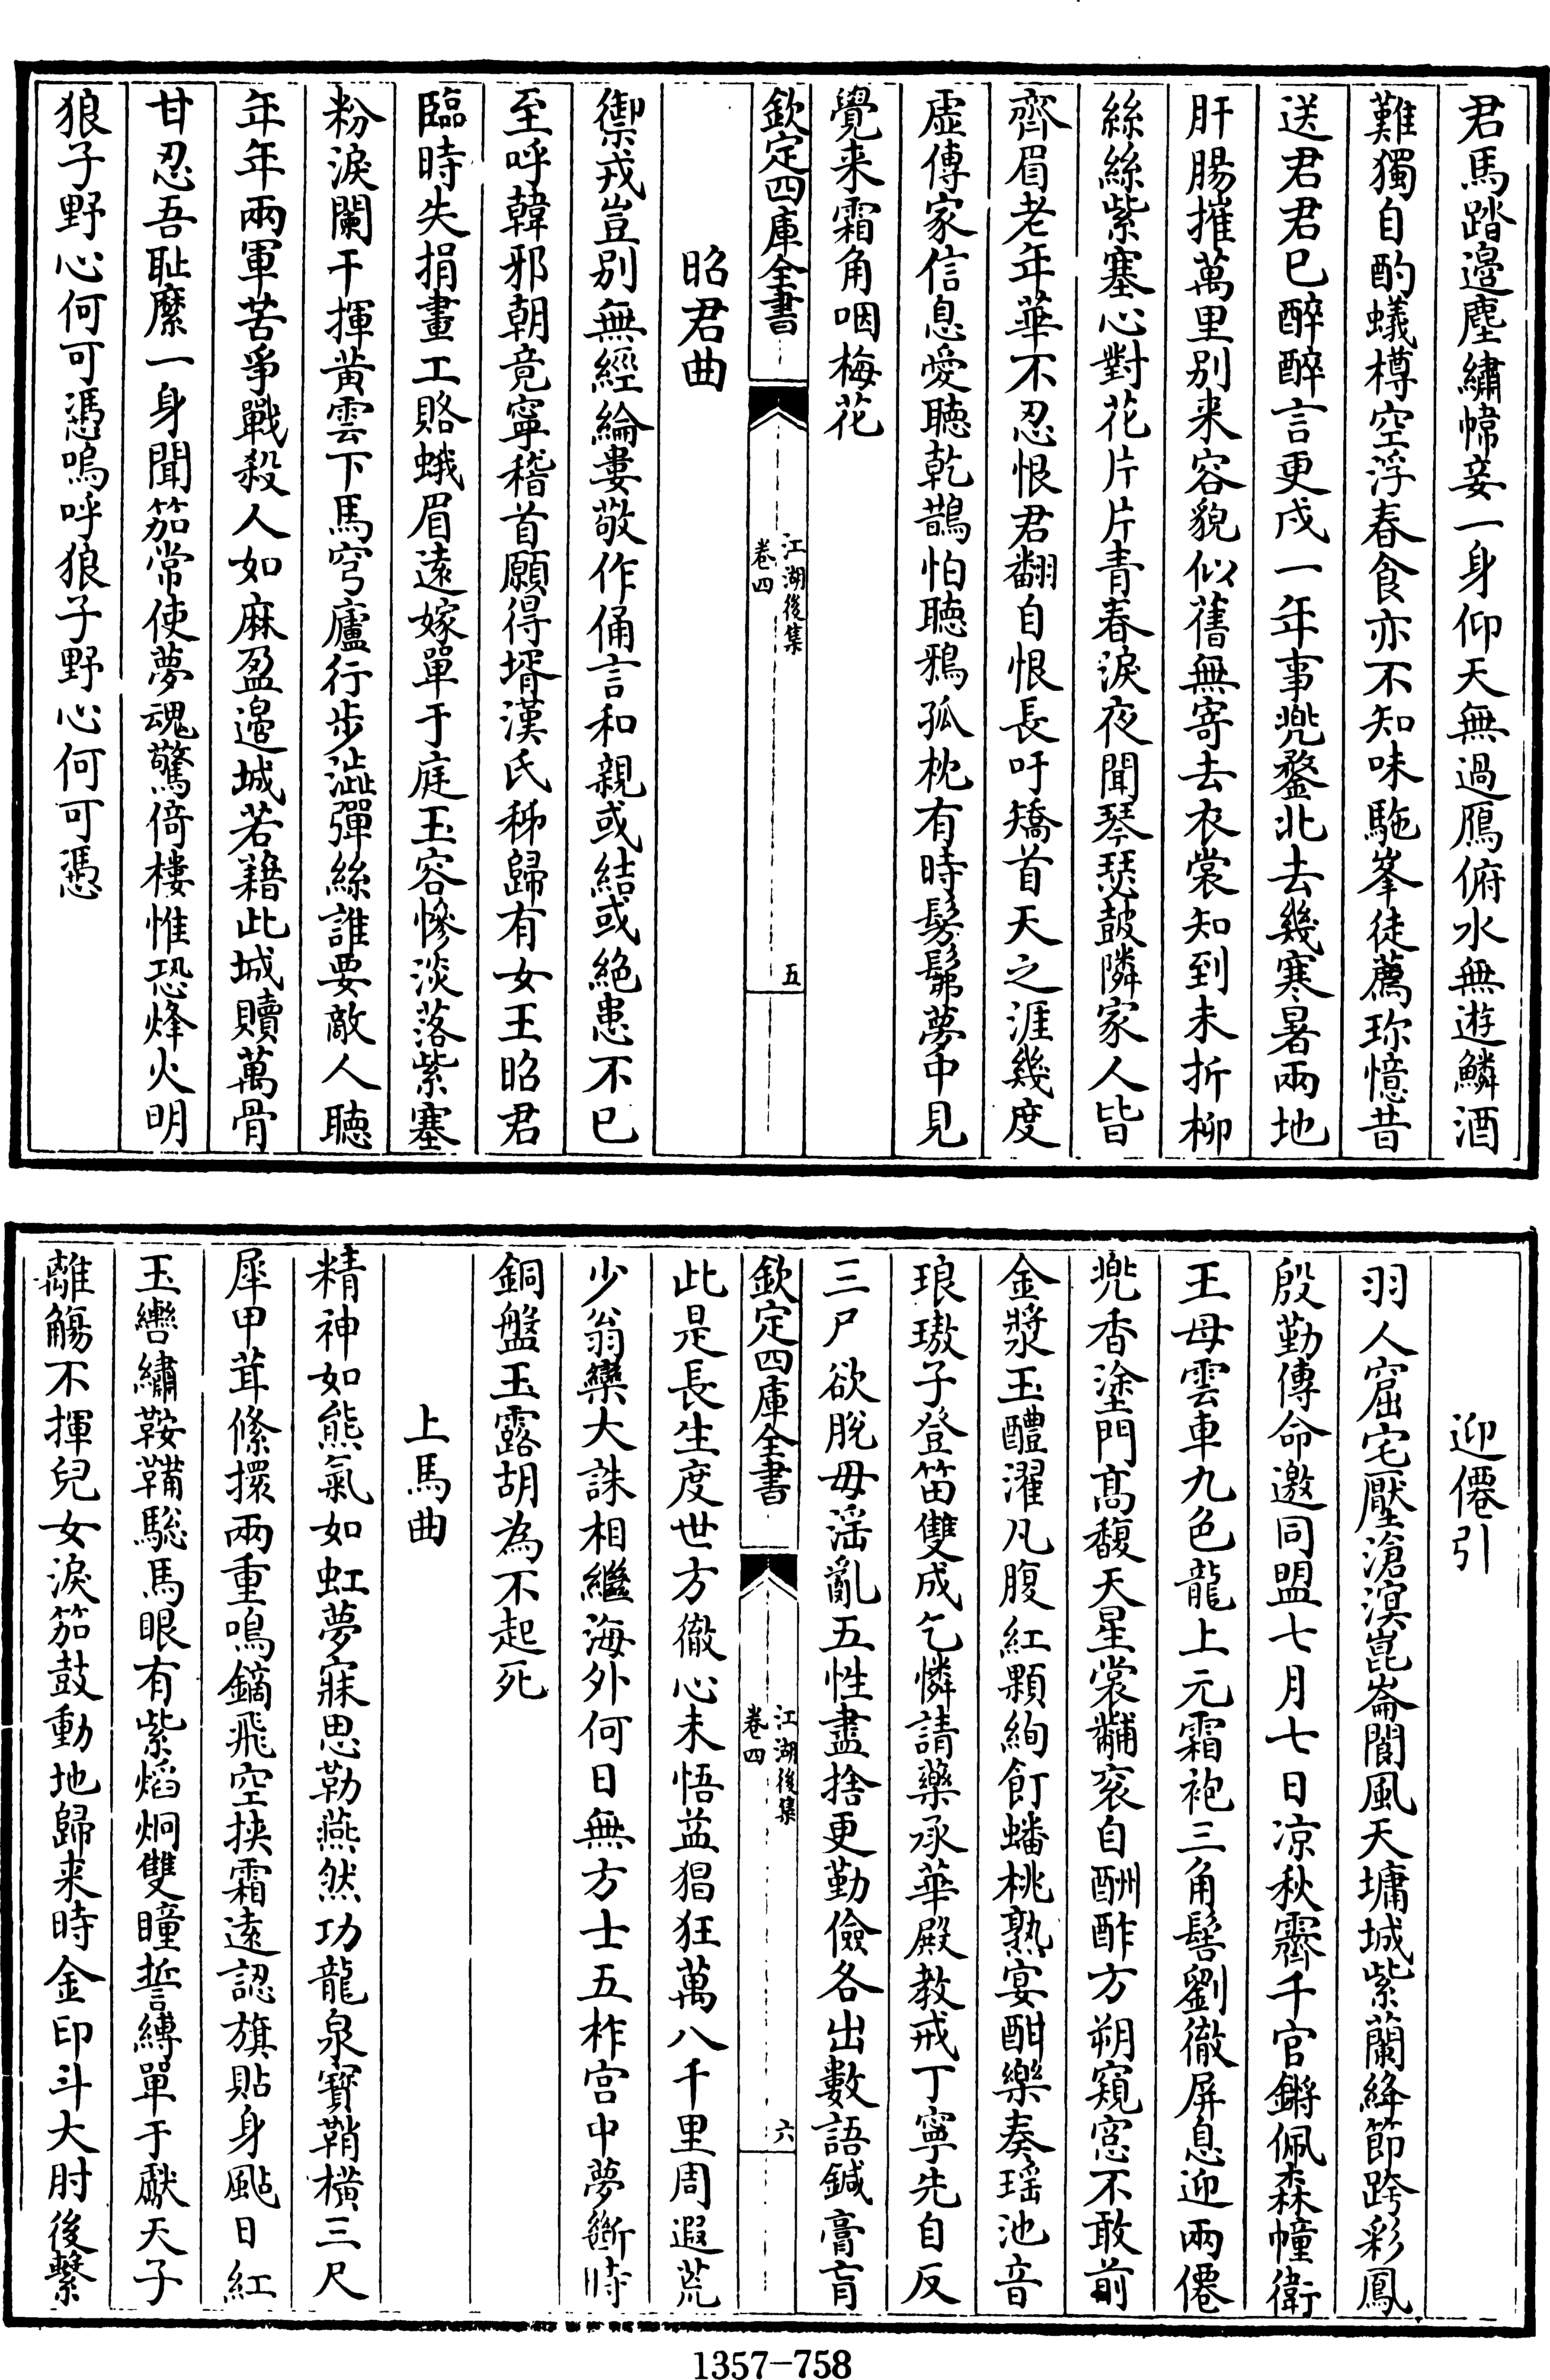 君馬踏邉塵繡幃妾一身仰天無過鴈俯水無遊鱗酒
難獨自酌蟻樽空浮春食亦不知味駞峯徒薦珎憶昔
送君君已醉醉言更戍一年事兠鍪北去幾寒暑兩地
肝腸摧萬里别来容貌似舊無寄去衣裳知到未折柳
絲絲紫塞心對花片片青春淚夜聞琴瑟鼓隣家人皆
齊眉老年華不忍恨君翻自恨長吁矯首天之涯幾度
虚傳家信息愛聽乾鵲怕聽鴉孤枕有時髣髴夢中見
覺来霜角咽梅花
欽定四庫全書
江湖後集
卷四
五
昭君曲
禦戎豈别無經綸婁敬作俑言和親或結或絶患不已
至呼韓邪朝竟寧稽首願得壻漢氏秭歸有女王昭君
臨時失捐畫工賂蛾眉逺嫁單于庭玉容慘淡落紫塞
粉淚闌干揮黄雲下馬穹廬行步澁彈絲誰要敵人聽
年年兩軍苦爭戰殺人如麻盈邉城若藉此城贖萬骨
甘忍吾耻縻一身聞笳常使夢魂驚倚樓惟恐烽火明
狼子野心何可憑嗚呼狼子野心何可憑
迎僊引
羽人窟宅壓滄溟崑崙閬風天墉城紫蘭絳節跨彩鳳
殷勤傳命邀同盟七月七日凉秋霽千官鏘佩森幢衛
王母雲車九色龍上元霜袍三角髻劉徹屏息迎兩僊
兠香塗門髙馥天星裳黼衮自酬酢方朔窺窓不敢前
金漿玉醴濯凡腹紅顆絢飣蟠桃熟宴酣樂奏瑶池音
琅璈子登笛雙成乞憐請藥承華殿教戒丁寧先自反
三尸欲脱毋滛亂五性盡捨更勤儉各出數語鍼膏肓
欽定四庫全書
江湖後集
卷四
六
此是長生度世方徹心未悟益猖狂萬八千里周遐荒
少翁欒大誅相繼海外何日無方士五柞宫中夢斷時
銅盤玉露胡為不起死
上馬曲
精神如熊氣如虹夢寐思勒燕然功龍泉寳鞘横三尺
犀甲茸絛擐兩重鳴鏑飛空挾霜逺認旗貼身颭日紅
玉轡繡鞍鞴騘馬眼有紫焰炯雙瞳誓縛單于獻天子
離觴不揮兒女淚笳鼓動地歸来時金印斗大肘後繫
1357-758